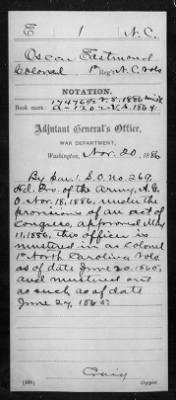 E | 1 | N.C.
Oscar Eastmond
Colonel 1st Reg't N.C. Vols
NOTATION.
Book mark:
Adjutant General's Office,
WAR DEPARTMENT,
Washington, Nov. 20, 1886
By par. 1. S.O. No. 269,
of the Army, A.G.
O. Nov. 18, 1886, under the
provisions of an act of
Congress, approved May
11, 1886, this officer is
mustered in as Colonel
1st North Carolina Vols
as of date June 20, 1865,
and mustered out
as such as of date
June 27, 1865.
Craig
Copyist.